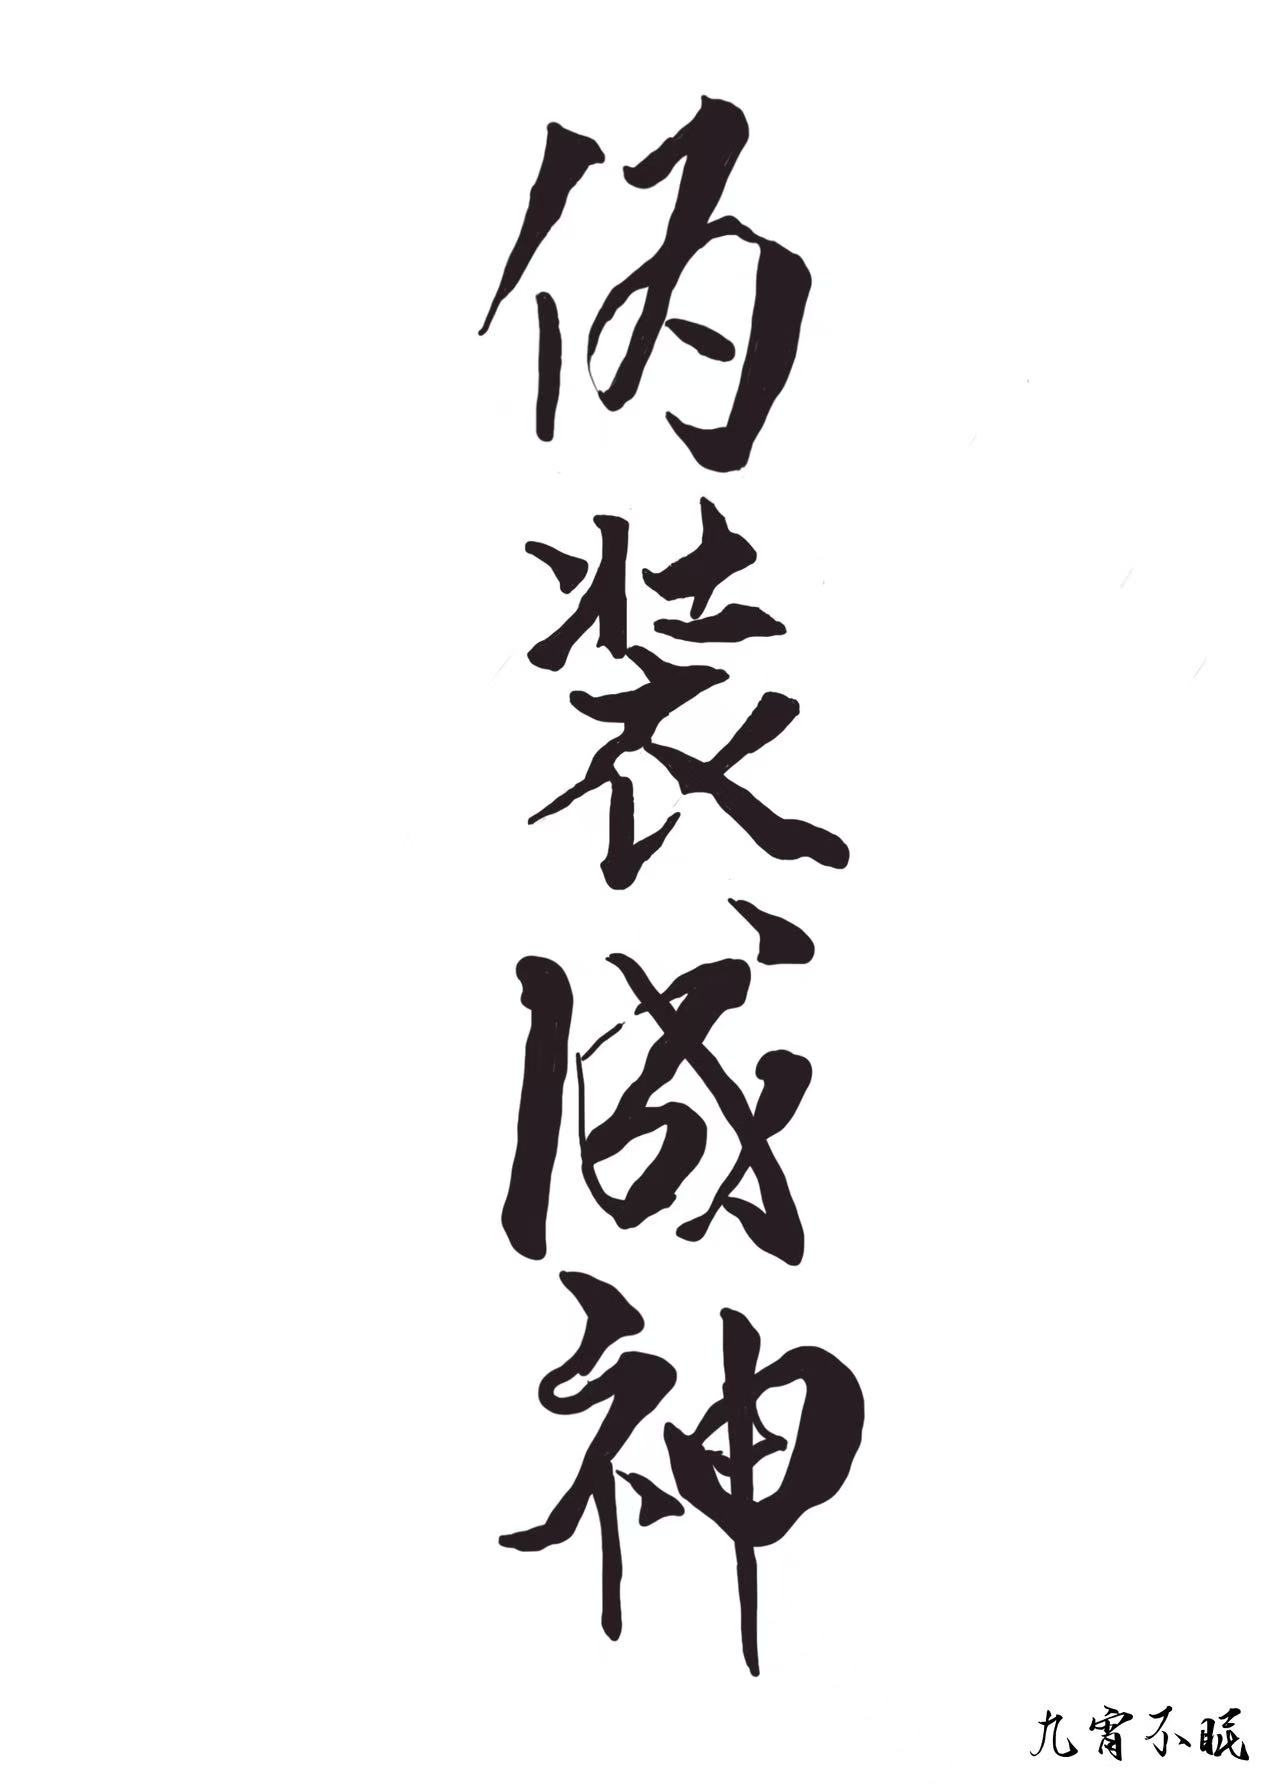 伪装成神
九霄不眠